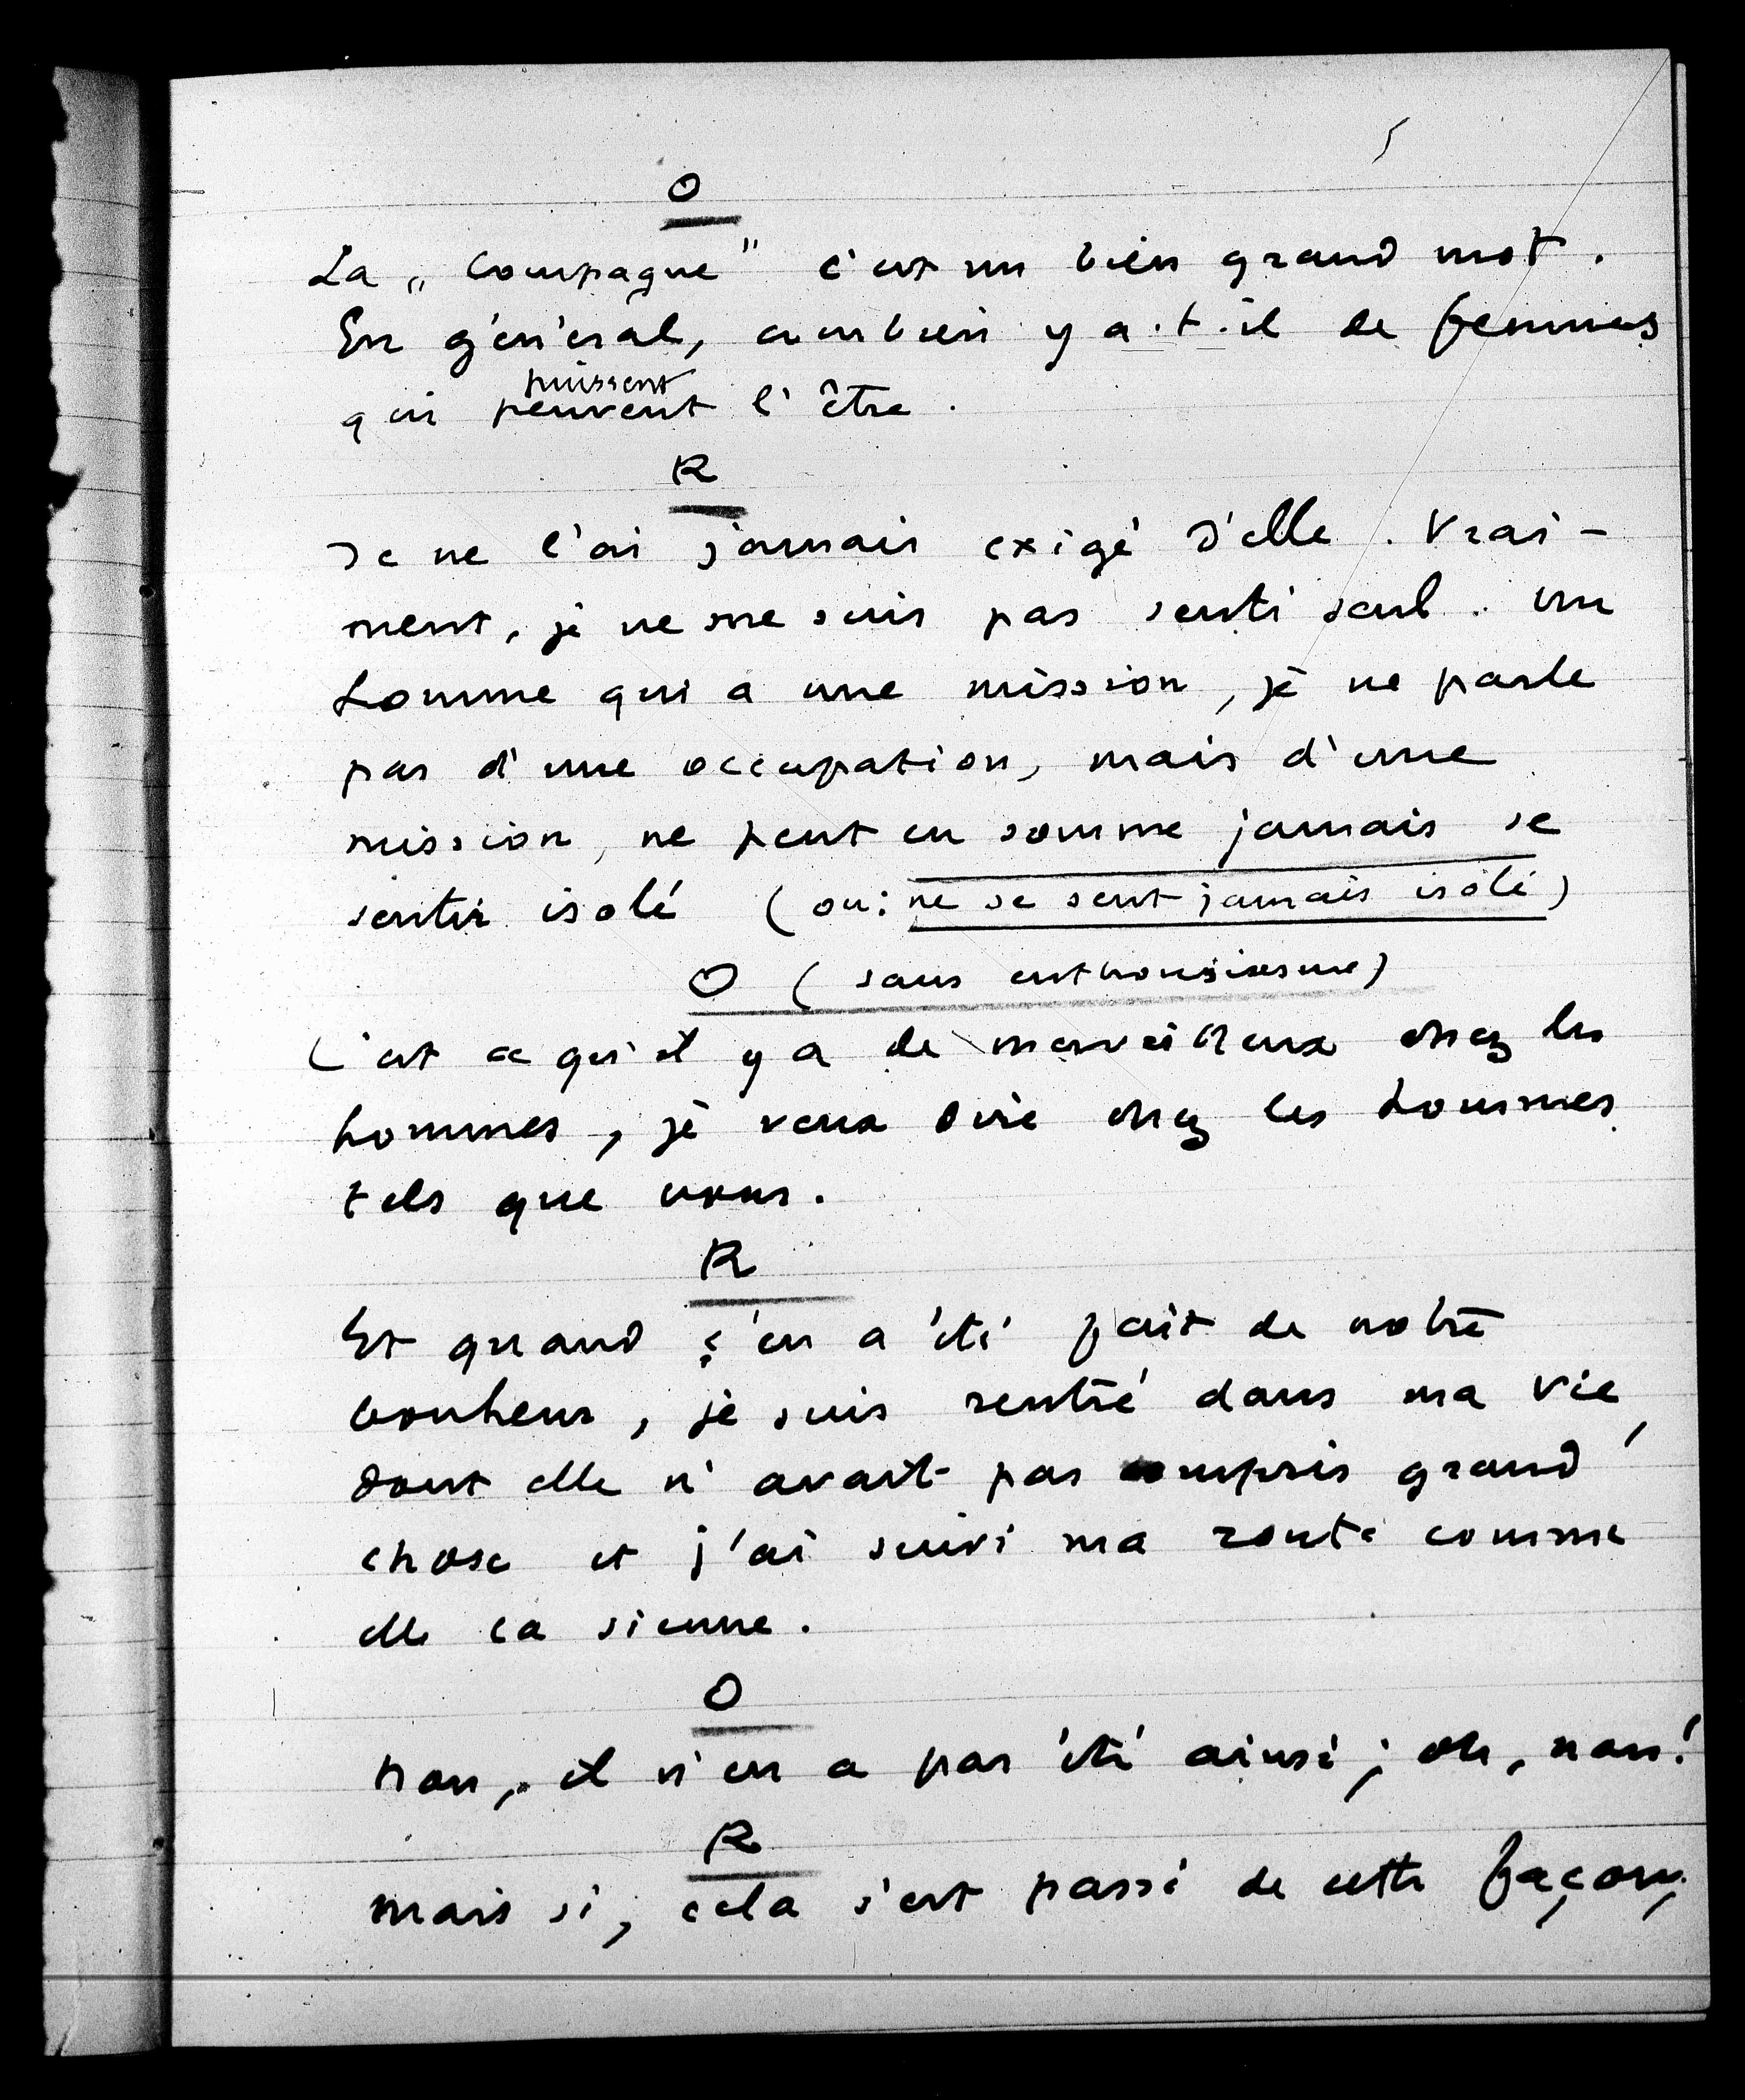 5
O
La „ Compagne" c'est un bien grand mot.
En général, combien y a-t-il de femmes
puissent
qui peuvent l'être.
R
Je ne l'ai jamais exigé d'elle. Vrai-
ment, je ne me suis pas senti seul. Un
homme qui a une mission, je ne parle
pas d'une occupation, mais d'une
mission, ne peut en somme jamais se
sentir isolé (ou: ne se sent jamais isolé)
O (sans enthousiasme)
C'est ce qu'il y a de merveilleux chez les
hommes, je veux dire chez les hommes
tels que vous.
R
Et quand ç'en a été fait de notre
bonheur, je suis rentré dans ma vie,
dont elle n'avait pas compris grand'
chose et j'ai suivi ma route comme
elle la sienne.
O
Non, il n'en a pas été ainsi; oh, non!
R
Mais si, cela s'est passé de cette façon,